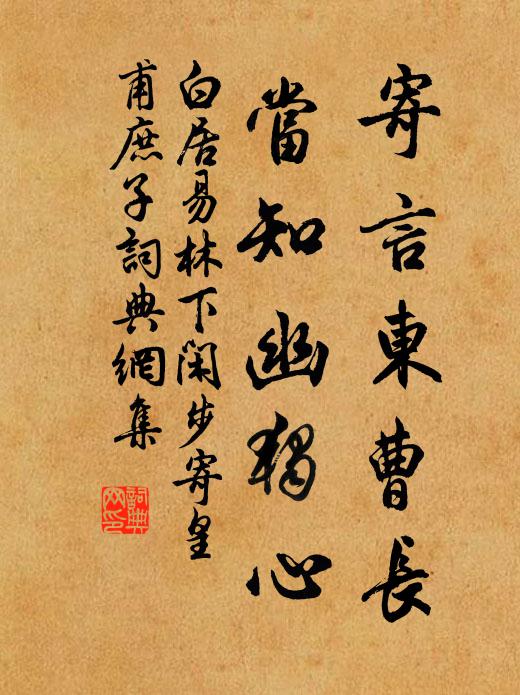 寄言東曹長
當知幽獨心
白居易林下閑步寄皇
甫庶子詞典網集
詞典網印